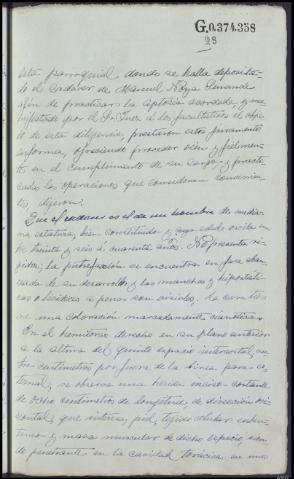 G.0.374.358
28
esta parroquial, donde se halla deposita-
do el cadáver de Manuel Noya
a fin de practicar la autopsia acordada, y ma-
nifestado por el Sr Juez a los facultativos el obje-
to de esta diligencia, prestaron estos juramento
en forma, ofreciendo proceder bien y fielmen-
te en el cumplimiento de su cargo; y practi-
cadas las operaciones que consideran convenien-
tes, dijeron:
Que el cadáver es el de un hombre de media-
na estatura, bien constituido y cuya edad oscila en-
tre treinta y seis á cuarenta años. No presenta ri-
gidez; la putrefacción se encuentra en fase avan-
zada de su desarrollo y las manchas
o lividices a penas son visibles. La cara tie-
ne una coloración marcadamente cianótica.
En el hemitorax derecho en su plano anterior
a la altura del quinto espacio intercostal, cua-
tro centímetros por fuera de la línea paraes-
ternal, se observa una herida inciso-cortante
de ocho centímetros de longitud, de dirección ori-
zontal, que interesa, piel, tejido celular subcu-
táneo y masa muscular de dicho espacio, sien-
do penetrante en la cavidad torácica en unos